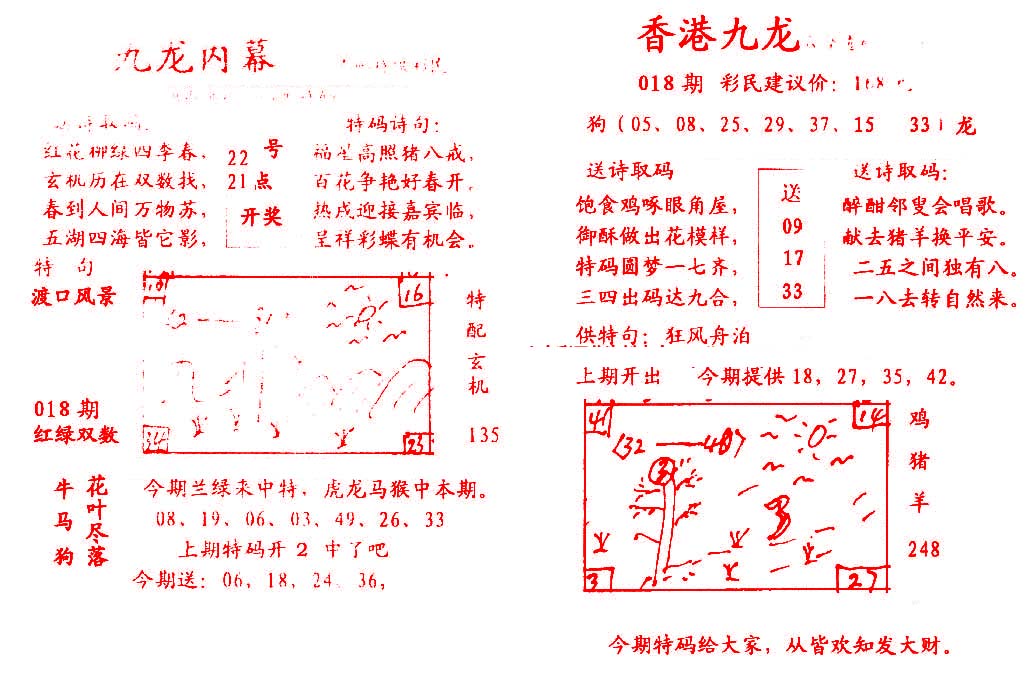 九龙内幕
特码诗句:
红花柳绿四季春,
玄机历在双数找,
春到人间万物苏,
五湖四海皆它影,
22号
21点
开奖
福星高照猪八戒,
百花争艳好春开。
热戌迎接嘉宾临,
呈祥彩蝶有机会。
特 句
渡口风景
16
23
特配玄机
135
018期
红绿双数
牛马狗
花叶尽落
今期兰绿来中特,虎龙马猴中本期。
08、19、06、03、49、26、33
上期特码开2 中了吧
今期送:06,18,24、36,
香港九龙
018期 彩民建议价:168
狗(05、08、25、29、37、15 33)龙
送诗取码
饱食鸡啄眼角屋,
御酥做出花模样,
特码圆梦一七齐,
三四出码达九合,
送
09
17
33
送诗取码:
醉酣邻叟会唱歌。
献去猪羊换平安。
二五之间独有八。
一八去转自然来。
供特句:狂风舟泊
上期开出 今期提供18,27,35,42。
41
14
32
3
27
鸡猪羊
248
今期特码给大家,从皆欢知发大财。